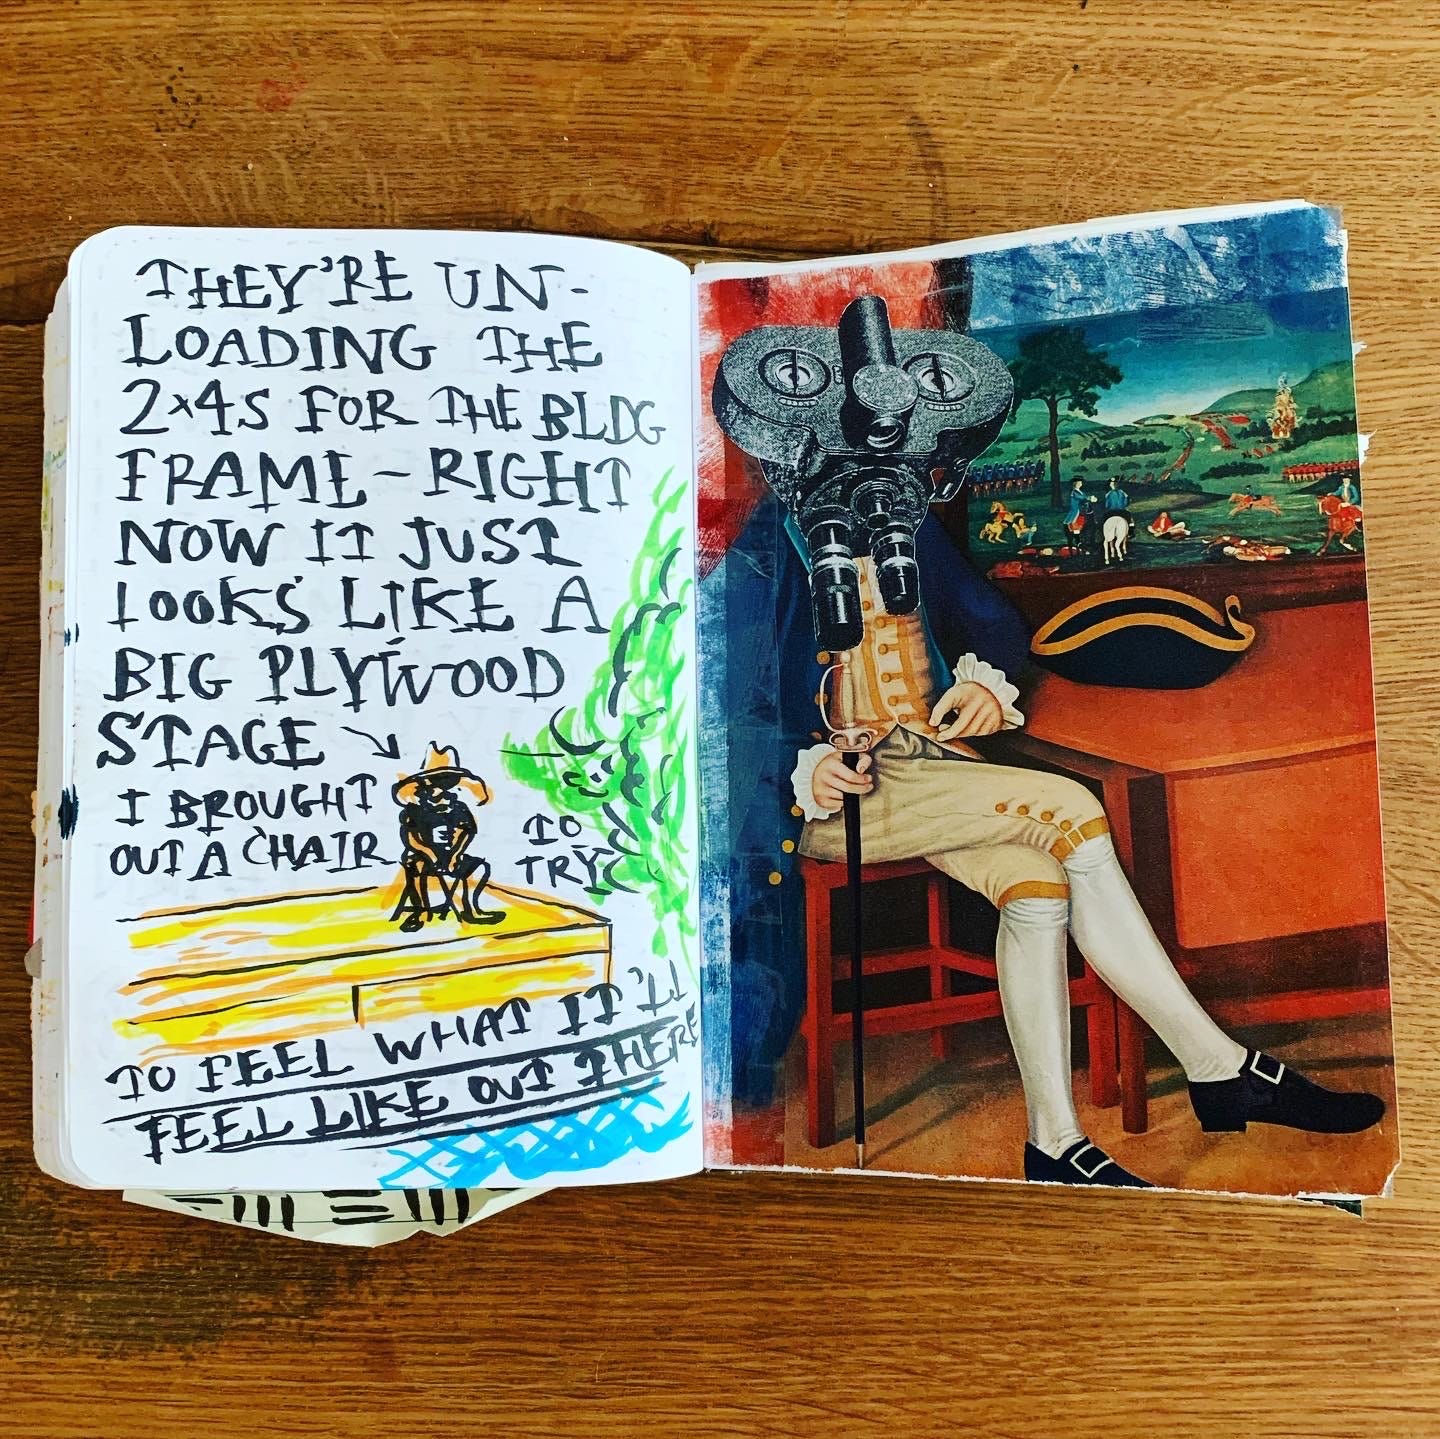 THEY'RE UN-
LOADING THE
2x4S FOR THE BLDG
FRAME - RIGHT
NOW IT JUST
LOOKS LIKE A
BIG PLYWOOD
STAGE
I BROUGHT
OUT A CHAIR
TO
TRY
TO FEEL WHAT IT'LL
FEEL LIKE OUT THERE